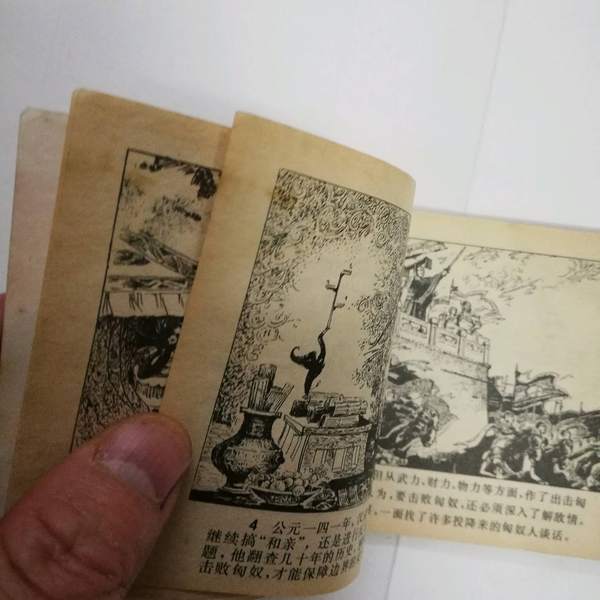 4 公元一四一年，
继续搞“和亲”，还是进行
题，他翻查几十年的历史，
击败匈奴，才能保障边界
从武力、财力、物力等方面，作了出击匈
为，要击败匈奴，还必须深入了解敌情。
一面找了许多投降来的匈奴人谈话。